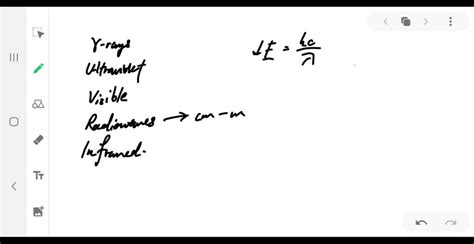 γ-rays
Ultraviolet
Visible
Radiowaves → cm-m
Infrared.
↓E = hc/λ
TT